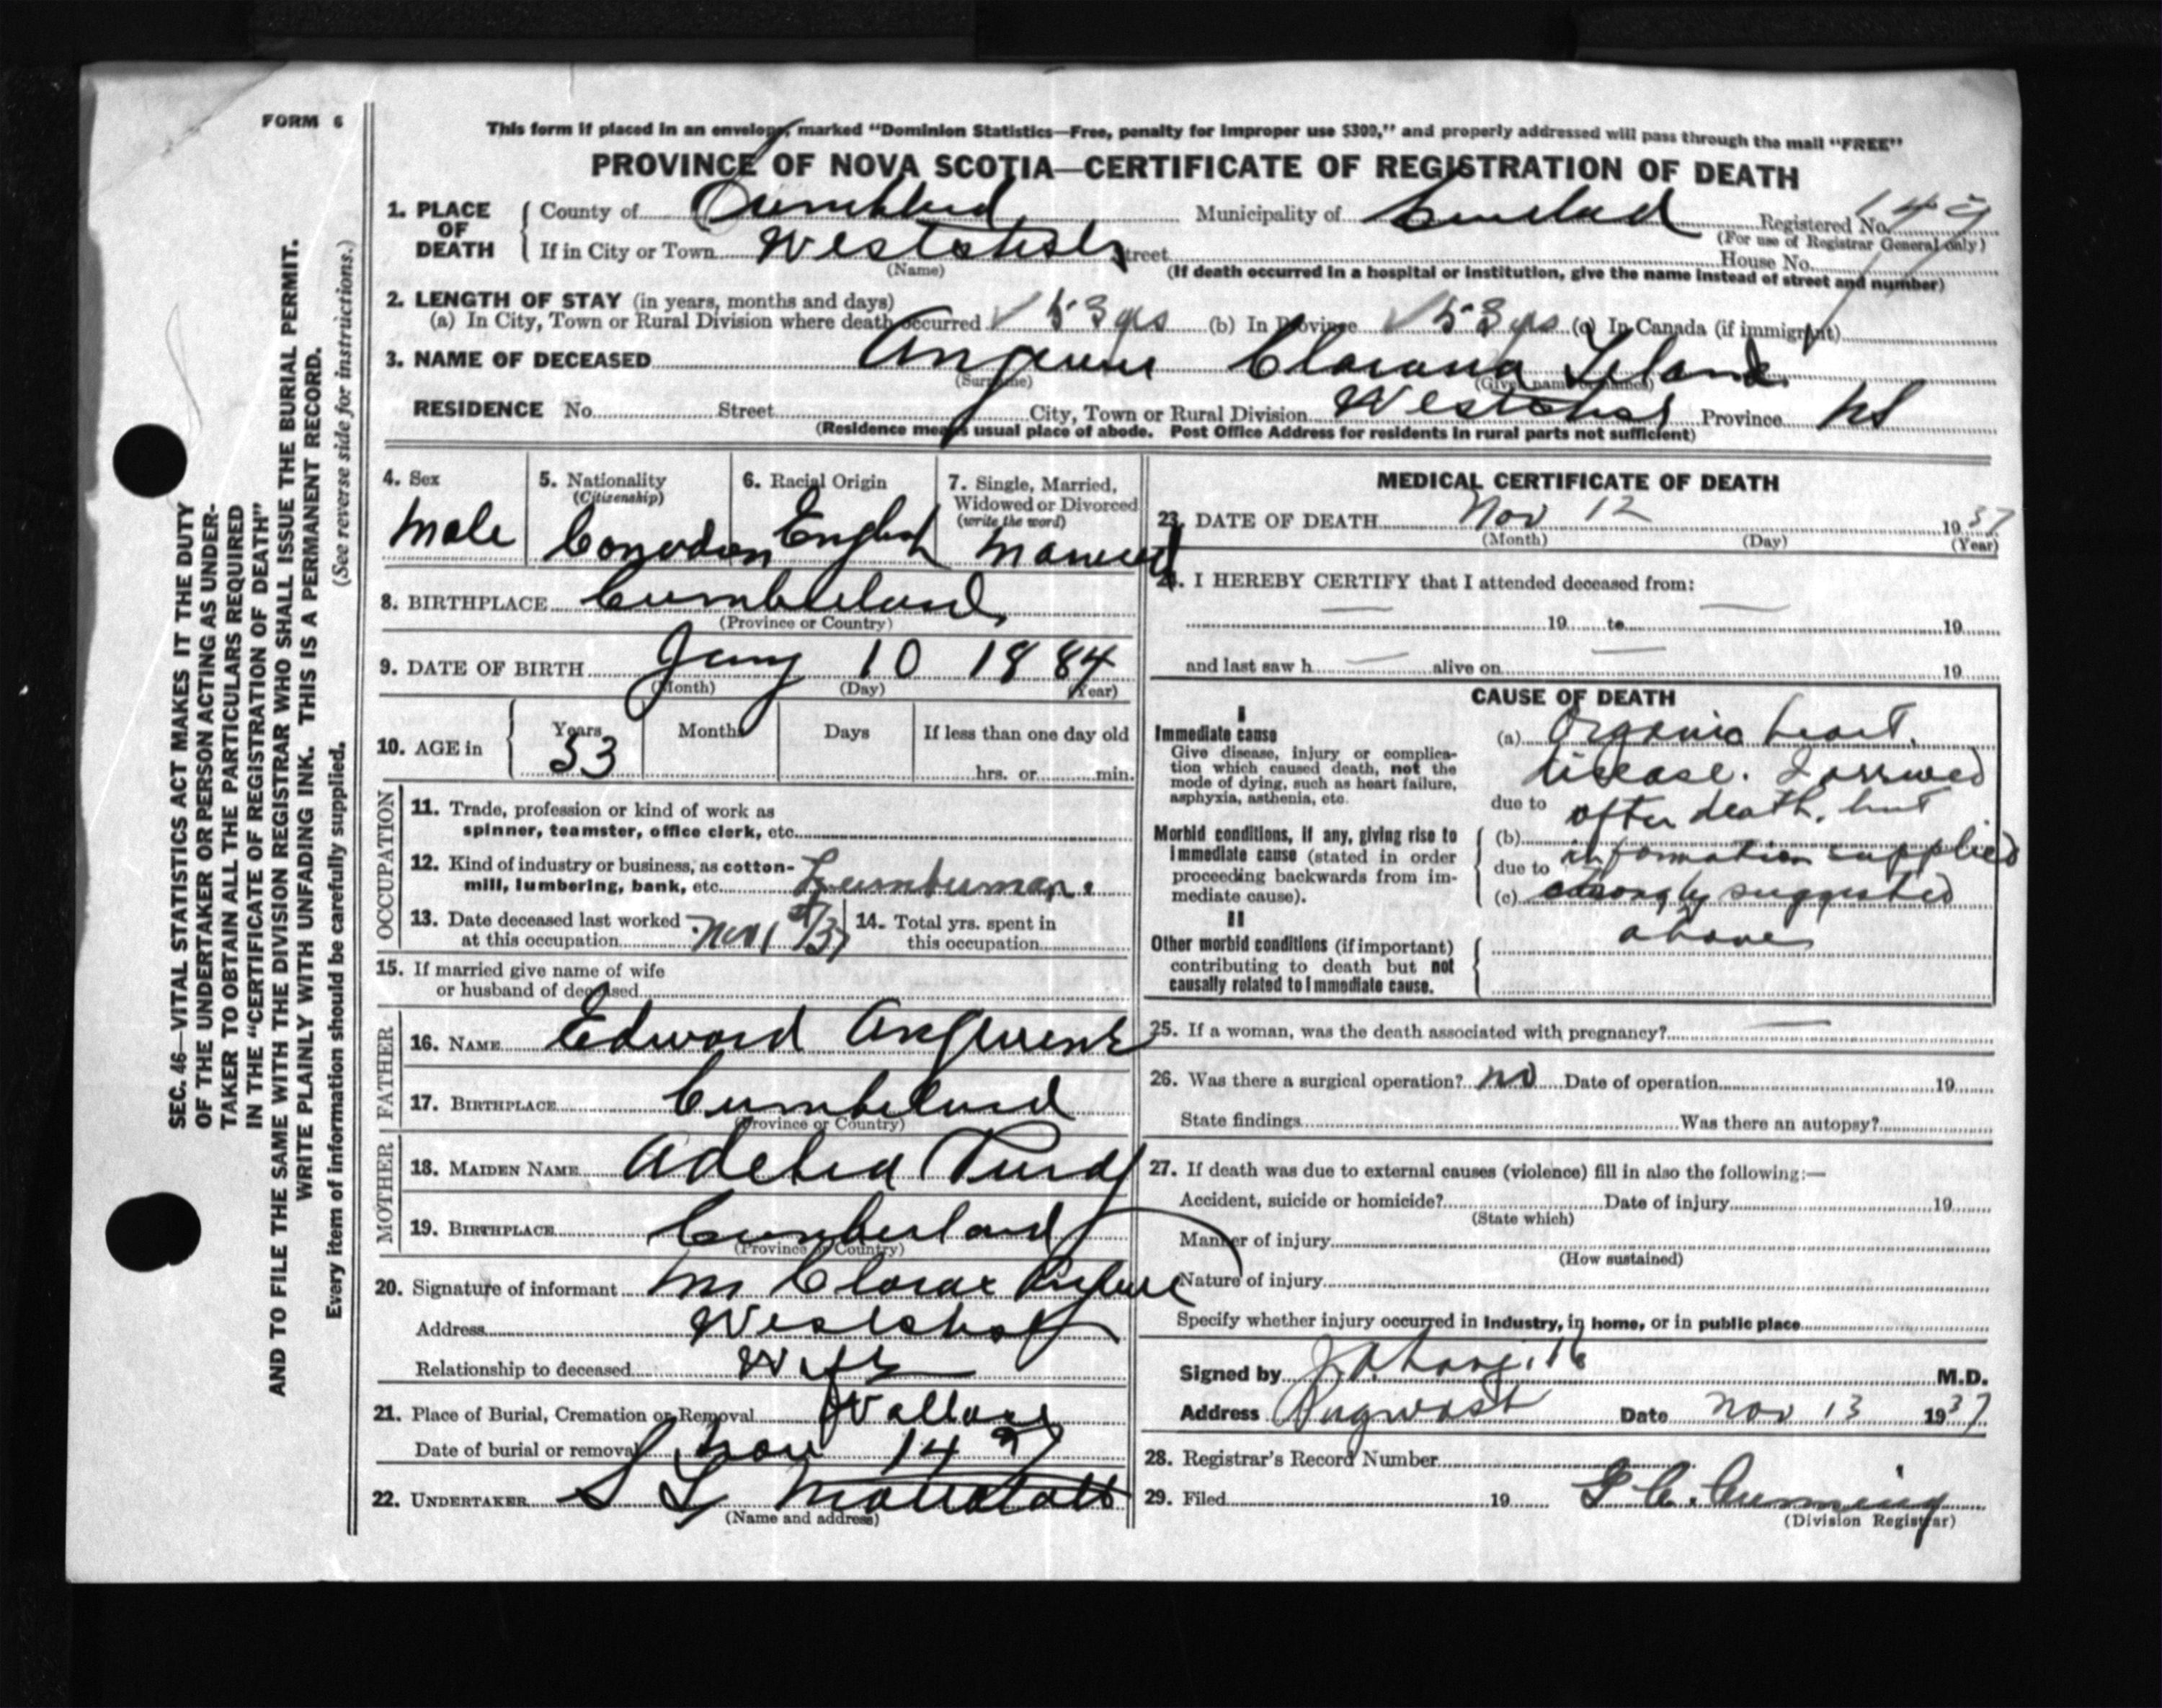 FORM 6
This form if placed in an envelope, marked "Dominion Statistics—Free, penalty for improper use $300," and properly addressed will pass through the mail "FREE"
PROVINCE OF NOVA SCOTIA—CERTIFICATE OF REGISTRATION OF DEATH
1. PLACE OF DEATH { County of Municipality of Registered No. 149
(For use of Registrar General only)
If in City or Town Street House No.
(Name) (If death occurred in a hospital or institution, give the name instead of street and number)
2. LENGTH OF STAY (in years, months and days)
(a) In City, Town or Rural Division where death occurred 53 yrs (b) In Province 53 yrs (c) In Canada (if immigrant)
3. NAME OF DECEASED
(Surname) (Given name or names)
RESIDENCE No. Street City, Town or Rural Division Province NS
(Residence means usual place of abode. Post Office Address for residents in rural parts not sufficient)
4. Sex 5. Nationality (Citizenship) 6. Racial Origin 7. Single, Married, Widowed or Divorced (write the word)
Male Canadian English Married
8. BIRTHPLACE Cumberland
(Province or Country)
9. DATE OF BIRTH Jany 10 1884
(Month) (Day) (Year)
10. AGE in { Years Months Days If less than one day old
53 hrs. or min.
OCCUPATION
11. Trade, profession or kind of work as
spinner, teamster, office clerk, etc.
12. Kind of industry or business, as cotton-
mill, lumbering, bank, etc. Lumberman.
13. Date deceased last worked
at this occupation Nov 1st/37
14. Total yrs. spent in
this occupation
15. If married give name of wife
or husband of deceased
FATHER
16. NAME Edward
17. BIRTHPLACE Cumberland
(Province or Country)
MOTHER
18. MAIDEN NAME Adelia Purdy
19. BIRTHPLACE Cumberland
(Province or Country)
20. Signature of informant
Address
Relationship to deceased Wife
21. Place of Burial, Cremation or Removal Wallace
Date of burial or removal Nov 14 37
22. UNDERTAKER S L
(Name and address)
MEDICAL CERTIFICATE OF DEATH
23. DATE OF DEATH Nov 12 1937
(Month) (Day) (Year)
24. I HEREBY CERTIFY that I attended deceased from:
— 19 to — 19
and last saw h — alive on — 19
CAUSE OF DEATH
I
Immediate cause
Give disease, injury or complica-
tion which caused death, not the
mode of dying, such as heart failure,
asphyxia, asthenia, etc.
Morbid conditions, if any, giving rise to
immediate cause (stated in order
proceeding backwards from im-
mediate cause).
II
Other morbid conditions (if important)
contributing to death but not
causally related to immediate cause.
(a) Organic heart
disease. I arrived
due to after death, but
(b)
due to information supplied
(c) strongly suggested
above
25. If a woman, was the death associated with pregnancy? —
26. Was there a surgical operation? no Date of operation 19
State findings Was there an autopsy?
27. If death was due to external causes (violence) fill in also the following:—
Accident, suicide or homicide? Date of injury 19
(State which)
Manner of injury
(How sustained)
Nature of injury
Specify whether injury occurred in industry, in home, or in public place
Signed by M.D.
Address Pugwash Date Nov 13 1937
28. Registrar's Record Number
29. Filed 19 Cumming
(Division Registrar)
SEC. 46—VITAL STATISTICS ACT MAKES IT THE DUTY
OF THE UNDERTAKER OR PERSON ACTING AS UNDER-
TAKER TO OBTAIN ALL THE PARTICULARS REQUIRED
IN THE "CERTIFICATE OF REGISTRATION OF DEATH"
AND TO FILE THE SAME WITH THE DIVISION REGISTRAR WHO SHALL ISSUE THE BURIAL PERMIT.
WRITE PLAINLY WITH UNFADING INK. THIS IS A PERMANENT RECORD.
Every item of information should be carefully supplied. (See reverse side for instructions.)